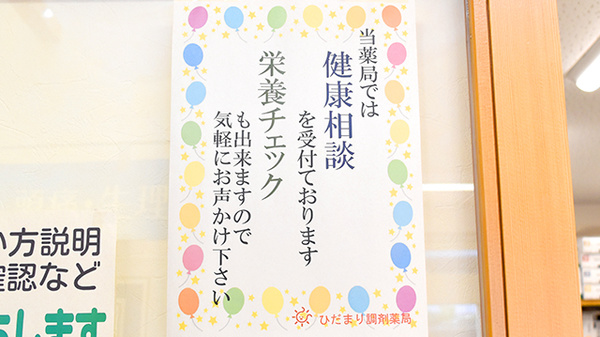 当薬局では
健康相談
を受付ております
栄養チェック
も出来ますので
気軽にお声かけ下さい
ひだまり調剤薬局
い方説明
確認など
します